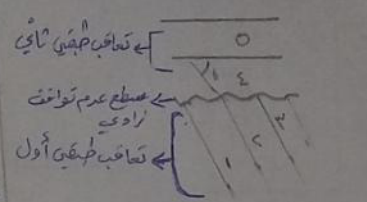 تعاقب طبقي ثاني
٥
٤
سطح عدم توافق
زاوي
٣
٢
١
تعاقب طبقي أول